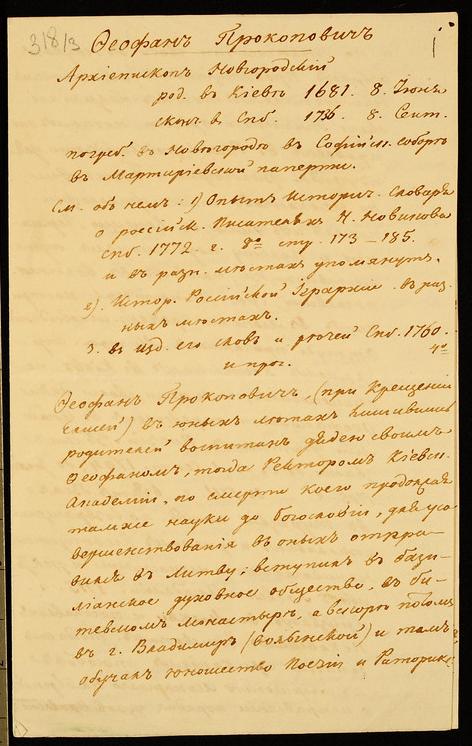 318/3 Ѳеофанъ Прокоповичъ 1
Архіепископъ Новгородскій
род. въ Кіевѣ 1681. 8. Іюня
сконч. въ Спб. 1736. 8. Сент.
погреб. въ Новѣгородѣ въ Софійск. соборѣ
въ Мартиріевской паперти.
См. объ немъ: 1) Опытъ Историч. Словаря
о россійск. Писателяхъ Н. Новикова
спб. 1772. г. 8º стр. 173–185.
и въ разн. мѣстахъ упомянутъ.
2). Истор. Россійской Іерархіи въ раз
ныхъ мѣстахъ.
3. въ изд. его словъ и рѣчей Спб. 1760.
4º
и проч.
Ѳеофанъ Прокоповичъ, (при Крещеніи
Елисей) въ юныхъ лѣтахъ лишившись
родителей воспитанъ дядею своимъ
Ѳеофаномъ, тогда Ректоромъ Кіевск.
Академіи, по смерти коего продолжая
тамже науки до богословіи, для усо
вершенствованія въ оныхъ отпра-
вился въ Литву; вступилъ въ бази-
ліанское духовное общество, въ би-
тевскомъ монастырѣ, а вскорѣ потомъ
въ г. Владимиръ (волынской) и тамъ
обучалъ юношество Поезіи и Риторикѣ